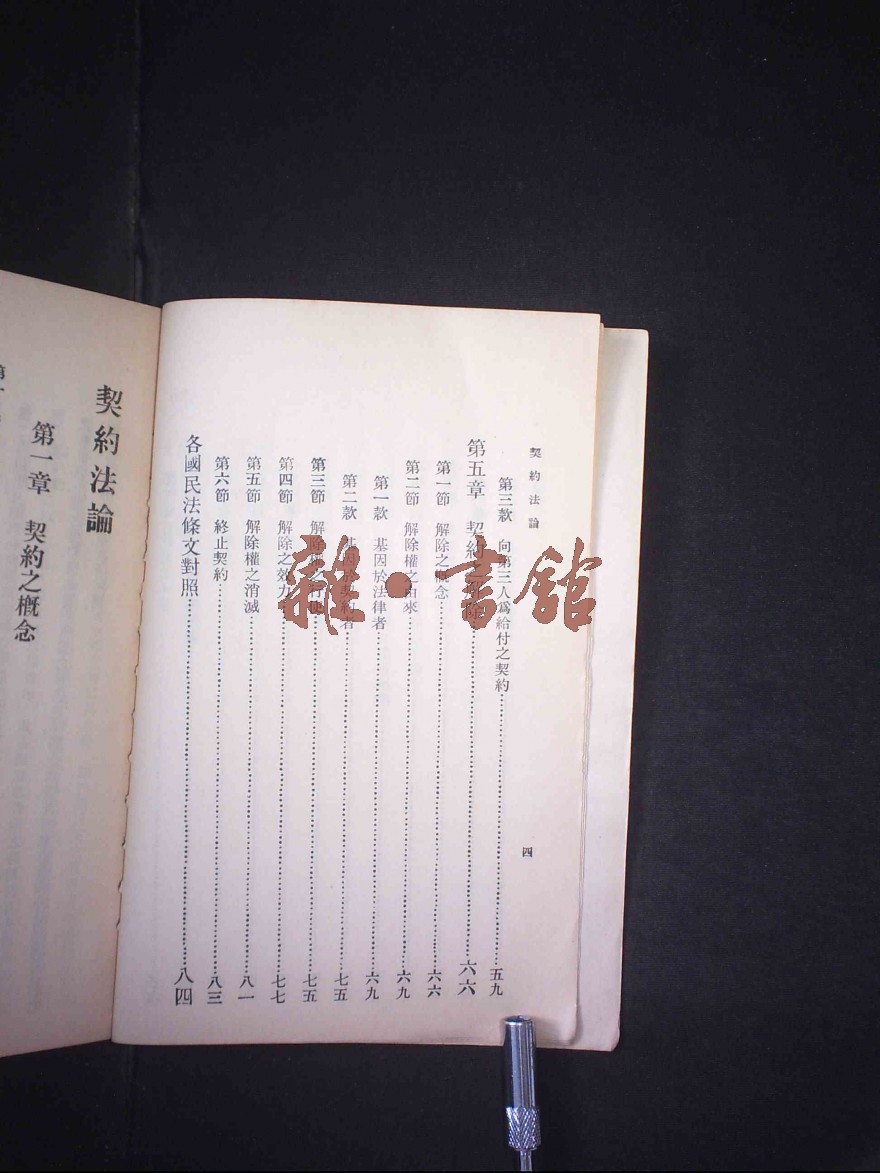 契約法論
四
第三款 向第三人為給付之契約 五九
第五章 契約之解除 六六
第一節 解除之概念 六六
第二節 解除權之由來 六九
第一款 基因於法律者 六九
第二款 基因於契約者 七五
第三節 解除權之行使 七五
第四節 解除之效力 七七
第五節 解除權之消滅 八一
第六節 終止契約 八三
各國民法條文對照 八四
契約法論
第一章 契約之概念
雜·書館